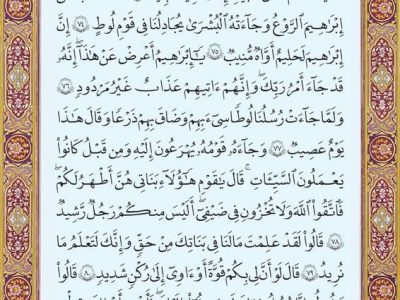 إِبْرَٰهِيمَ ٱلرَّوْعُ وَجَآءَتْهُ ٱلْبُشْرَىٰ يُجَٰدِلُنَا فِى قَوْمِ لُوطٍ ٧٤ إِنَّ
إِبْرَٰهِيمَ لَحَلِيمٌ أَوَّٰهٌ مُّنِيبٌ ٧٥ يَٰٓإِبْرَٰهِيمُ أَعْرِضْ عَنْ هَٰذَآ إِنَّهُۥ
قَدْ جَآءَ أَمْرُ رَبِّكَ وَإِنَّهُمْ ءَاتِيهِمْ عَذَابٌ غَيْرُ مَرْدُودٍ ٧٦
وَلَمَّا جَآءَتْ رُسُلُنَا لُوطًا سِىٓءَ بِهِمْ وَضَاقَ بِهِمْ ذَرْعًا وَقَالَ هَٰذَا
يَوْمٌ عَصِيبٌ ٧٧ وَجَآءَهُۥ قَوْمُهُۥ يُهْرَعُونَ إِلَيْهِ وَمِن قَبْلُ كَانُوا۟
يَعْمَلُونَ ٱلسَّيِّـَٔاتِ قَالَ يَٰقَوْمِ هَٰٓؤُلَآءِ بَنَاتِى هُنَّ أَطْهَرُ لَكُمْ
فَٱتَّقُوا۟ ٱللَّهَ وَلَا تُخْزُونِ فِى ضَيْفِىٓ أَلَيْسَ مِنكُمْ رَجُلٌ رَّشِيدٌ
٧٨ قَالُوا۟ لَقَدْ عَلِمْتَ مَا لَنَا فِى بَنَاتِكَ مِنْ حَقٍّ وَإِنَّكَ لَتَعْلَمُ مَا
نُرِيدُ ٧٩ قَالَ لَوْ أَنَّ لِى بِكُمْ قُوَّةً أَوْ ءَاوِىٓ إِلَىٰ رُكْنٍ شَدِيدٍ ٨٠ قَالُوا۟